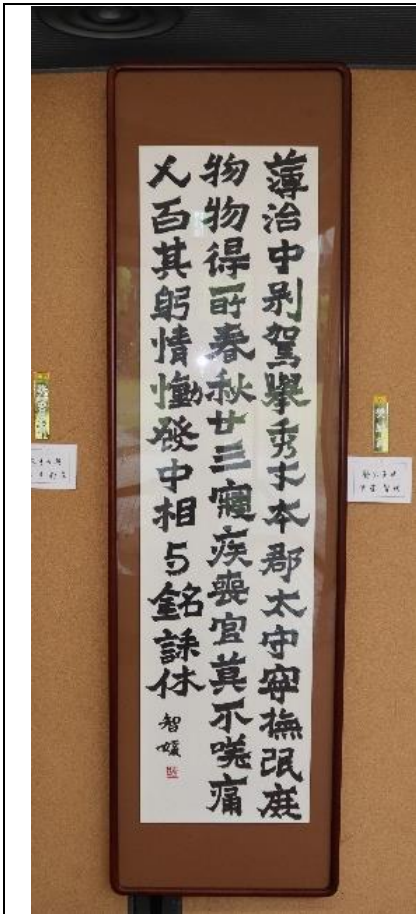 薄治中別駕舉秀才本郡太守寧撫氓庶
物物得所春秋廿三寢疾喪官莫不嗟痛
人百其躬情慟發中相与銘誄休
智媛